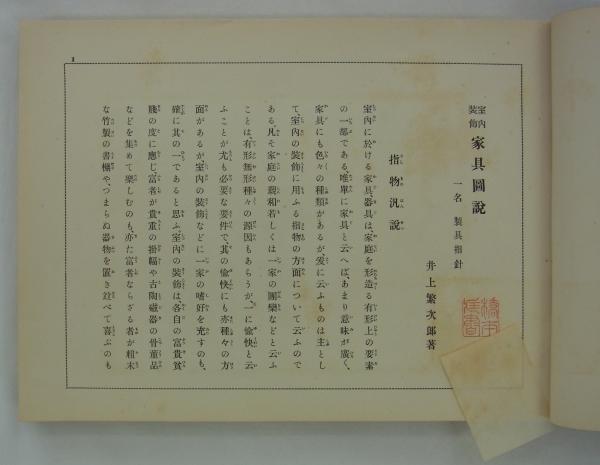 室内装飾 家具圖說
一名 製具指針
井上繁次郎著
指物汎說
室內に於ける家具、器具は、家庭を形造る有形上の要素
の一部である、唯單に家具と云へば、あまり意味が廣く、
家具にも色々の種類があるが、爰に云ふものは主とし
て、室內の裝飾に用ふる指物の方面について云ふので
ある。凡そ家庭の親和若しくは一家の團欒などと云ふ
ことは、有形無形種々の源因もあらうが、一に愉快と云
ふことが尤も必要な要件で、其の愉快にも亦種々の方
面があるが室內の裝飾などに一家の嗜好を充すのも、
確に其の一であると思ふ、室內の裝飾は、各自の富貴貧
賤の度に應じ、富者が貴重の掛幅や古陶磁器の骨董品
などを集めて樂しむのも、亦た富者ならざる者が粗末
な竹製の書棚や、つまらぬ器物を置き竝べて喜ぶのも
1